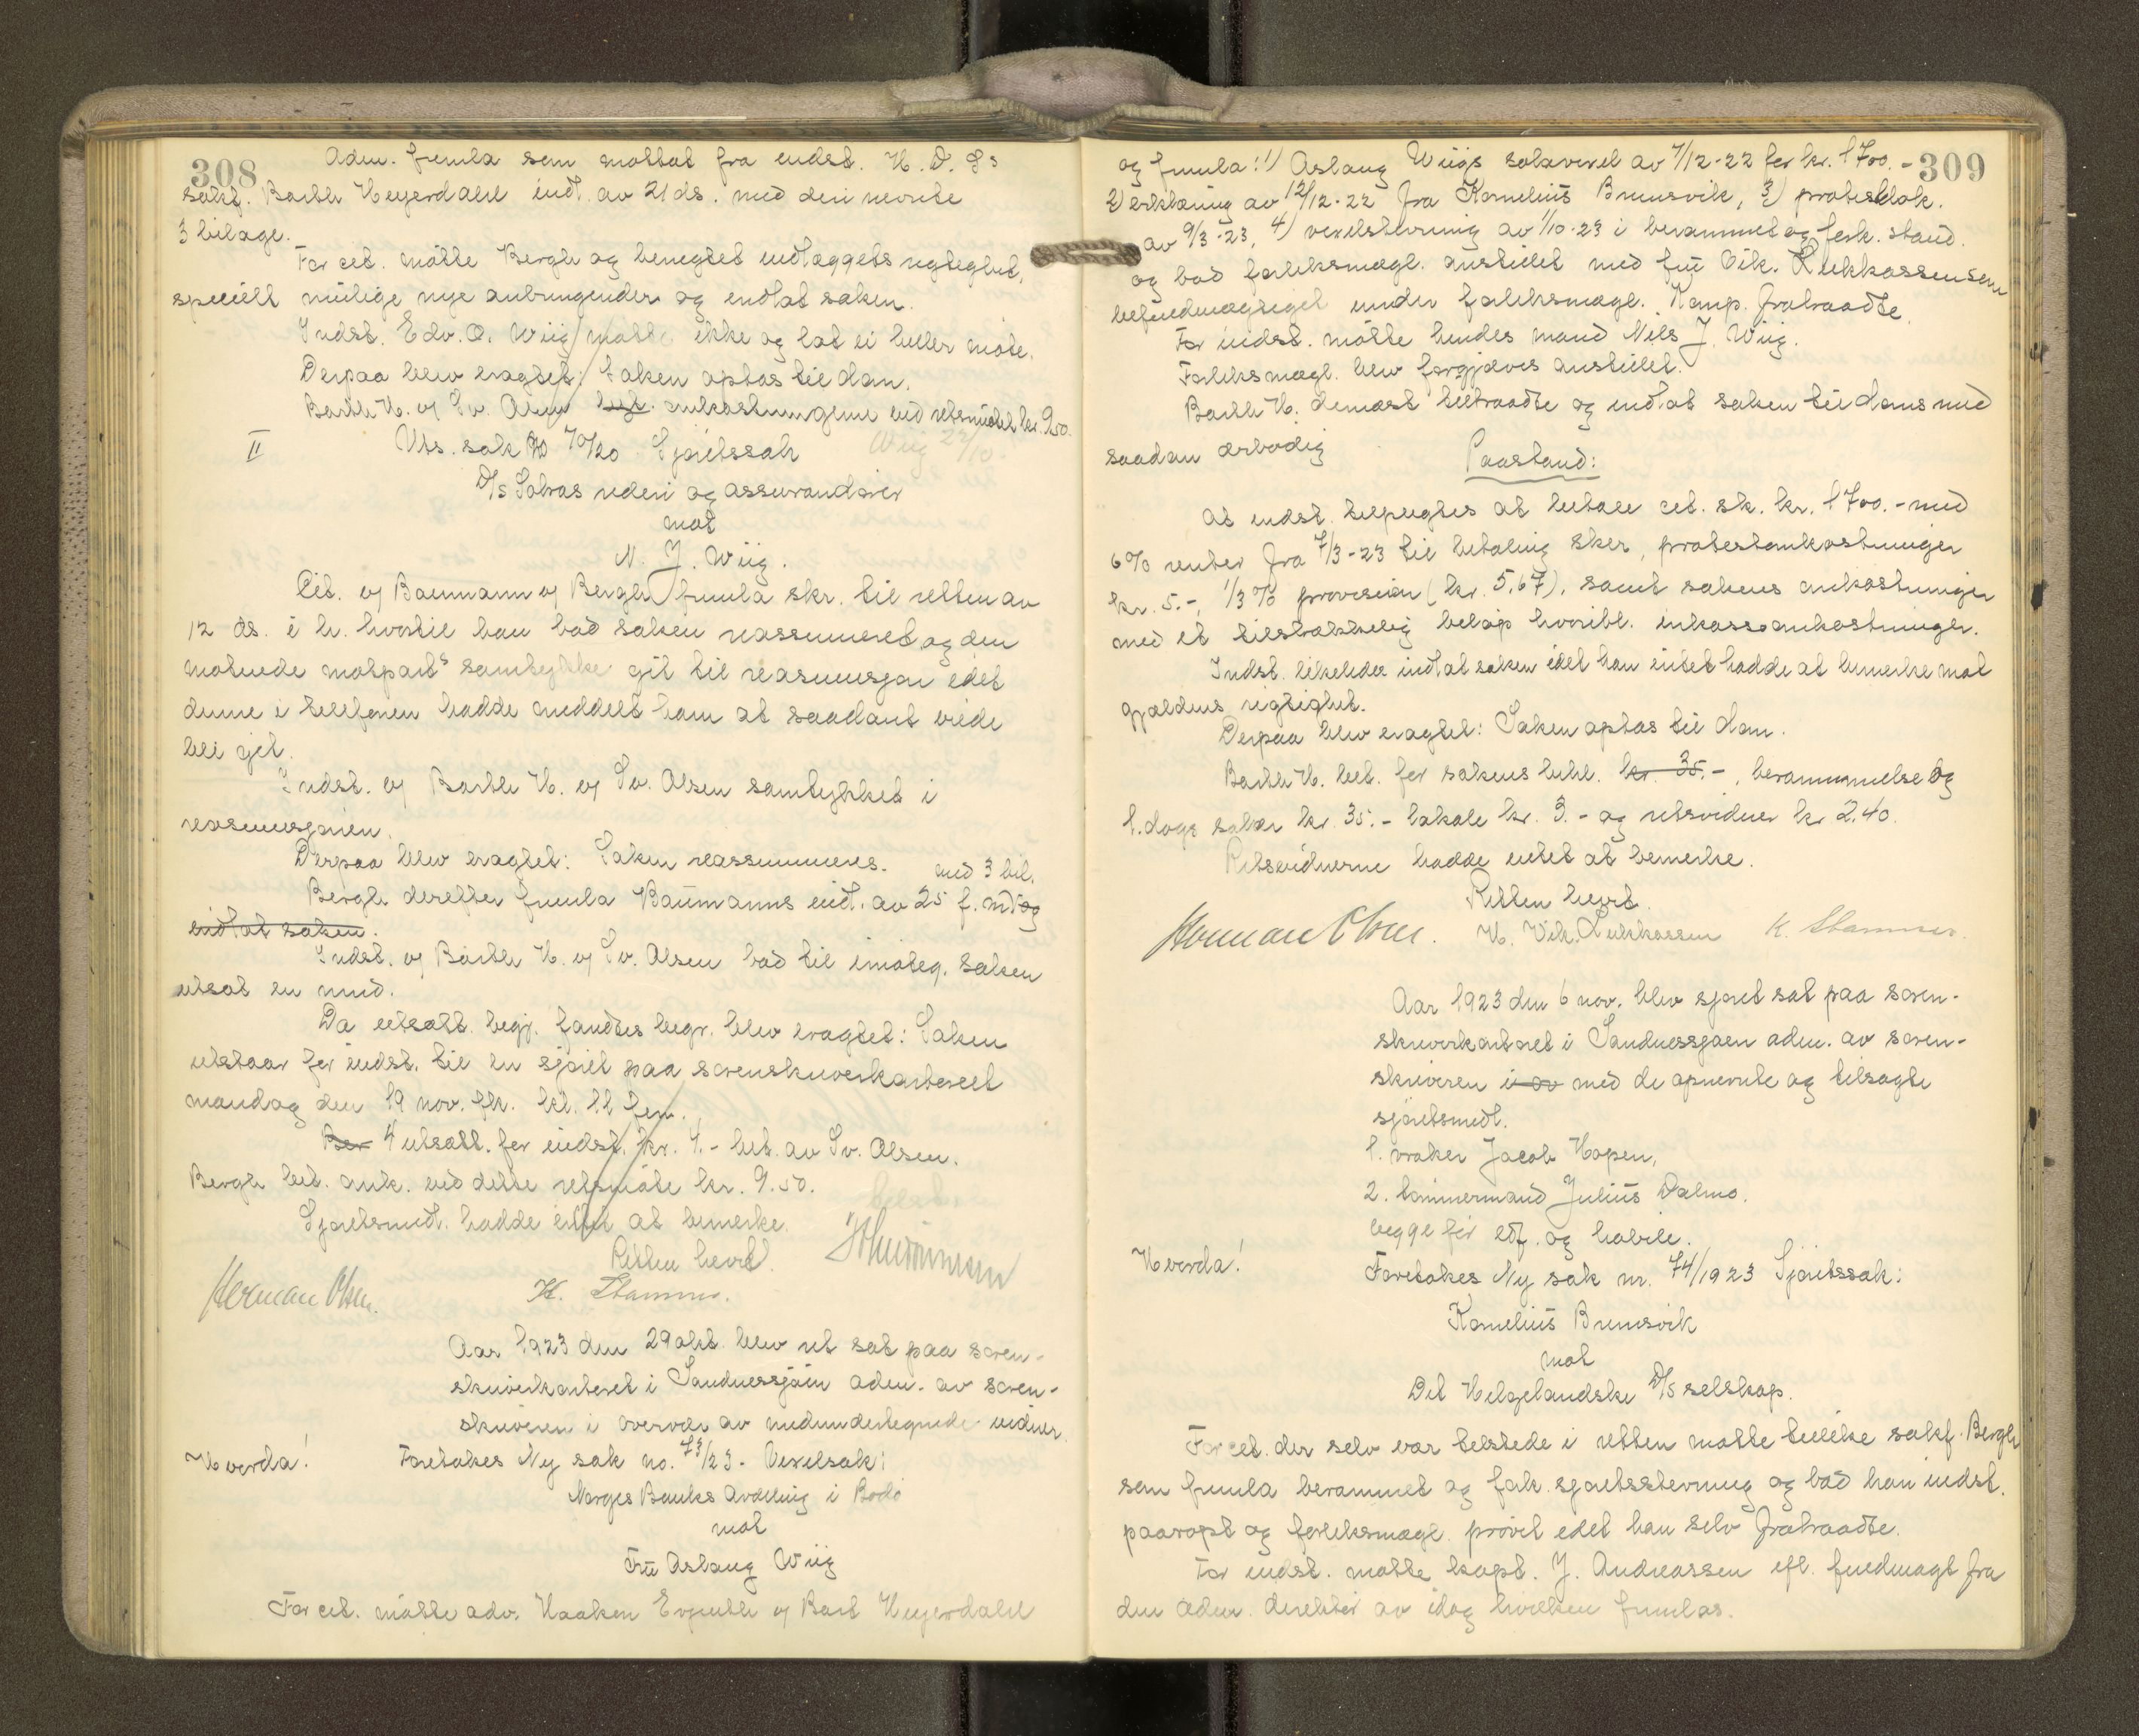 308
Adm. fremla som mottat fra indst. H. D. S's
sakf. Barth Heyerdahl indl. av 21 ds. med deri nevnte
3 bilage.
For cit. mötte Bergh og benegtet indlæggets rigtighet,
specielt mulige nye anbringender og indlot saken.
Indst. Edv. O. Wiig mötte ikke og lot ei heller möte.
Derpaa blev eragtet: Saken optas til dom.
Barth H. og Sv. Olsen omkostningene ved retsmötet kr. 9.50.
Wiig 22/10
II Uts. sak no 70/20 Sjöretssak
D/s Salvas rederi og assurandörer
mot
N. J. Wiig.
Cit. v/ Baumann v/ Bergh fremla skr. til retten av
12 ds. i h. hvortil han bad saken reassumeret og den
mötende motparts samtykke git til reasumsjon idet
denne i telefonen hadde meddelt ham at saadant vilde
bli git.
Indst. v/ Barth H. v/ Sv. Olsen samtykket i
reasumsjonen.
Derpaa blev eragtet: Saken reassumeres.
med 3 bil.
Bergh derefter fremla Baumanns indl. av 25 f. md og
indlot saken.
Indst. v/ Barth H. v/ Sv. Olsen bad til imöteg. saken
utsat en mnd.
Da utsætt. begj. fandtes begr. blev eragtet: Saken
utstaar for indst. til en sjöret paa sorenskriverkontoret
mandag den 19 nov. fk. kl. 11 fm.
Ber 4 utsætt. for indst. kr. 4.- bet. av Sv. Olsen.
Bergh bet. omk. ved dette retsmöte kr. 9.50.
Sjöretsmedl. hadde intet at bemerke.
Retten hevet.
Herman Olsen. K. Stamnes.
Aar 1923 den 29 okt. blev ret sat paa soren-
skriverkontoret i Sandnessjöen adm. av soren-
skriveren i overvær av medundertegnede vidner.
Hvorda! Foretokes Ny sak no. 73/23 - Vexelsak:
Norges Banks Avdeling i Bodö
mot
Fru Aslaug Wiig
For cit. mötte adv. Haakon Evjenth v/ Bart Heyerdahl
309
og fremla: 1) Aslaug Wiigs solavexel av 7/12-22 for kr. 1700.-
2) erklæring av 12/12-22 fra Kornelius Brunsvik, 3) protestdok.
av 9/3-23, 4) vexelstevning av 1/10-23 i berammet og fork. stand.
og bad forliksmægl. anstillet med fru Vik. Lukkassen som
befuldmægtiget under forliksmægl. Komp. fratraadte.
For indst. mötte hendes mand Nils J. Wiig.
Forliksmægl. blev forgjæves anstillet.
Barth H. dernæst tiltraadte og indlot saken til doms med
saadan ærbödig
Paastand:
At indst. tilpligtes at betale cit. sk. kr. 1700.- med
6% renter fra 7/3-23 til betaling sker, protestomkostninger
kr. 5.-, 1/3 % provision (kr. 5,67), samt sakens omkostninger
med et tilstrækkelig belöp hvoribl. inkassoomkostninger.
Indst. likeledes indlot saken idet han intet hadde at bemerke mot
gjældens rigtighet.
Derpaa blev eragtet: Saken optas til dom.
Barth H. bet. for sakens beh. kr. 35.-, berammelse og
1. dags salær kr. 35.- lokale kr. 3.- og retsvidner kr 2.40.
Retsvidnerne hadde intet at bemerke.
Retten hevet.
Herman Olsen. H. Vik. Lukkassen K. Stamnes.
Aar 1923 den 6 nov. blev sjöret sat paa soren-
skriverkontoret i Sandnessjöen adm. av soren-
skriveren i ov med de opnevnte og tilsagte
sjöretsmedl.
1. vraker Jacob Hopen,
2. tömmermand Julius Dalmo.
begge för edf. og habile.
Hvorda! Foretokes Ny sak nr. 74/1923 Sjöretssak:
Kornelius Brunsvik
mot
Det Helgelandske D/s selskap.
For cit. der selv var tilstede i retten mötte tillike sakf. Bergh
som fremla berammet og fork. sjöretsstevning og bad han indst.
paaropt og forliksmægl. prövet idet han selv fratraadte.
For indst. mötte kapt. J. Andreassen efl. fuldmagt fra
den adm. direktör av idag hvilken fremlas.